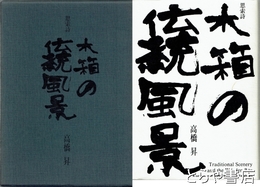 思索詩
木箱の
伝統風景
高橋 昇
思索詩
木箱の
伝統風景
高橋 昇
Traditional Scenery
とらや書店